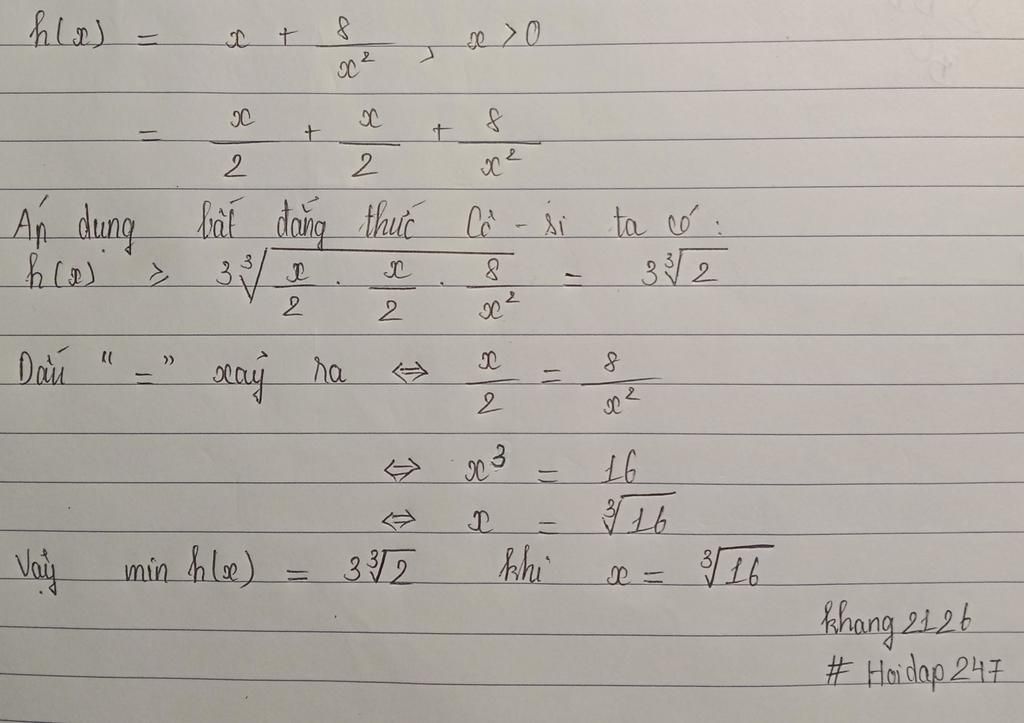 h(x) = x + 8/x², x > 0
= x/2 + x/2 + 8/x²
Áp dụng bất đẳng thức Cô - si ta có:
h(x) ≥ 3∛(x/2 . x/2 . 8/x²) = 3∛2
Dấu “=” xảy ra ⇔ x/2 = 8/x²
⇔ x³ = 16
⇔ x = ∛16
Vậy min h(x) = 3∛2 khi x = ∛16
khang2126
# Hoidap247